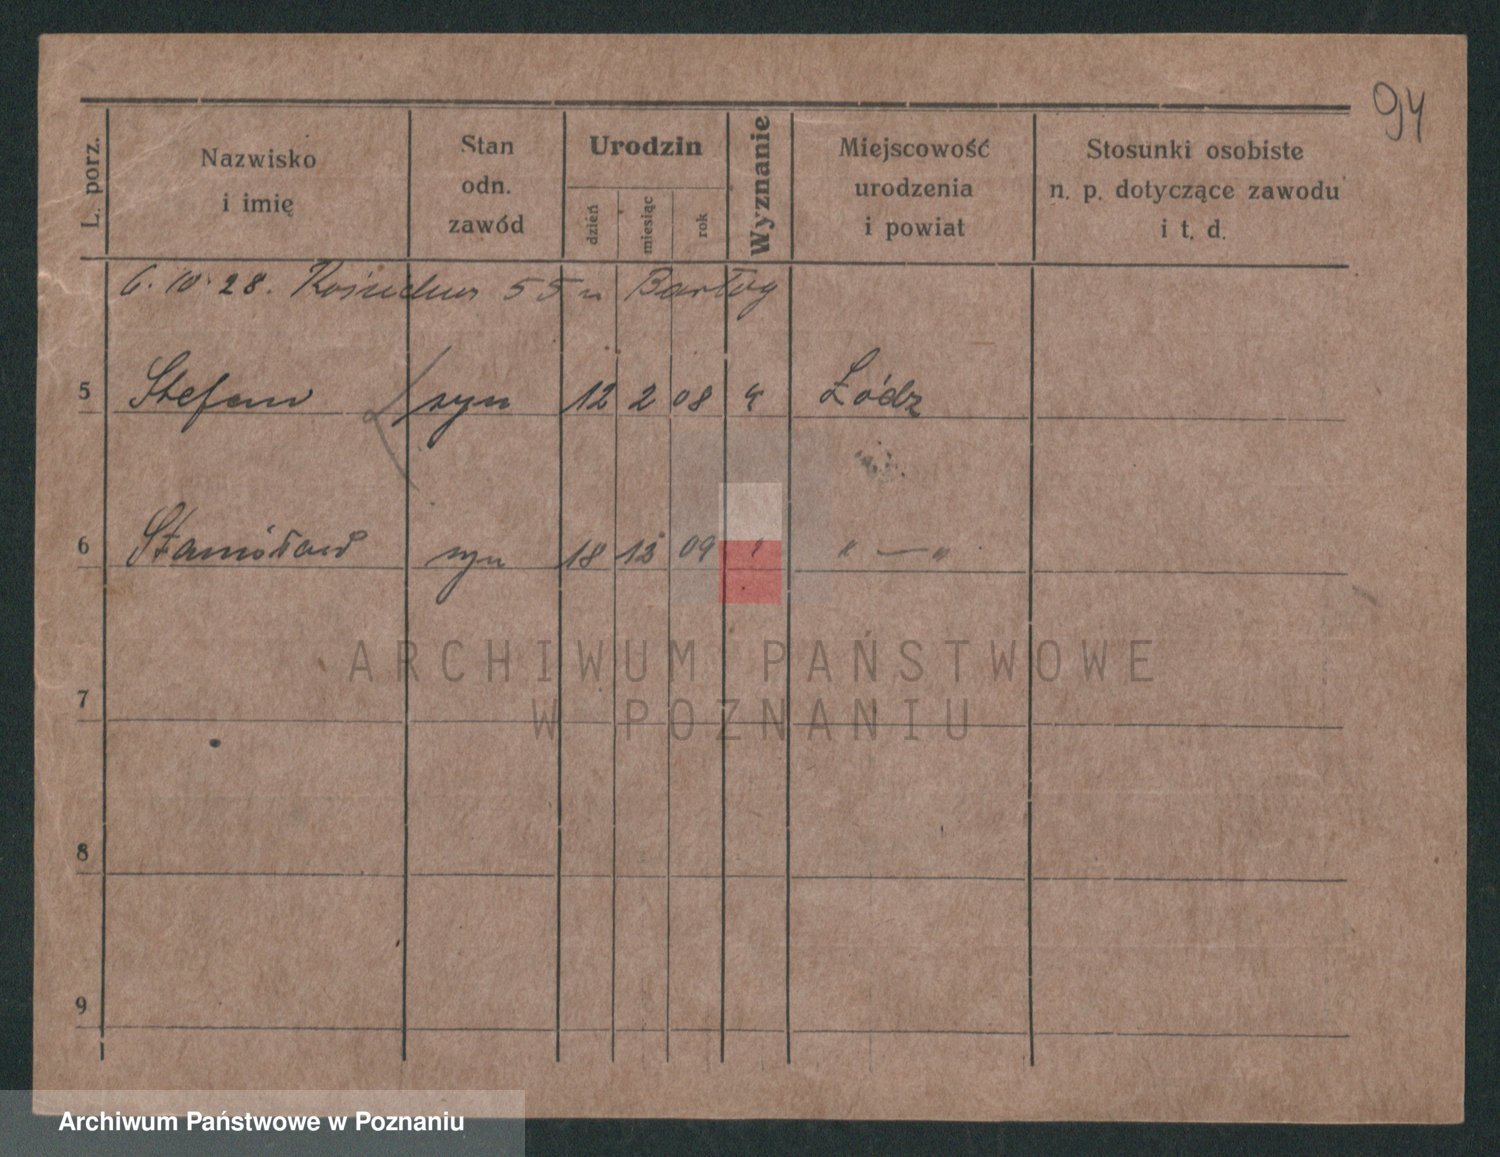 94
L. porz.
Nazwisko
i imię
Stan
odn.
zawód
Urodzin
dzień
miesiąc
rok
Wyznanie
Miejscowość
urodzenia
i powiat
Stosunki osobiste
n. p. dotyczące zawodu
i t. d.
6.10.28. 55 u Bartog
5 Stefan syn 12 2 08 Łódz
6 Stanisław syn 18 09 " " — "
7
8
9
ARCHIWUM PAŃSTWOWE
W POZNANIU
Archiwum Państwowe w Poznaniu